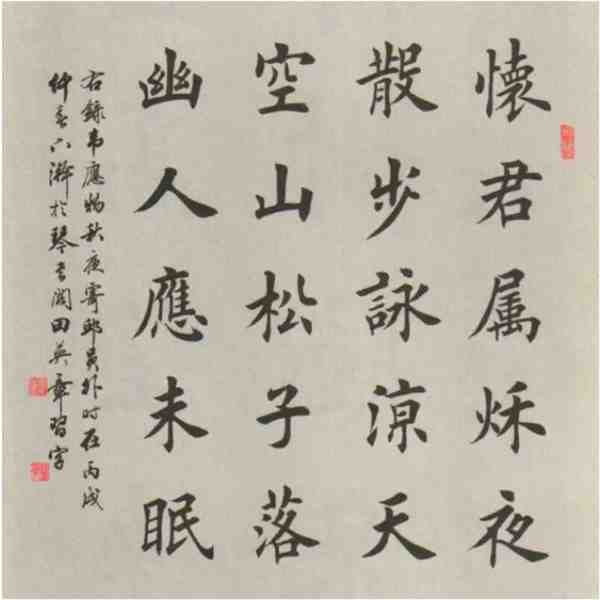 懷君属秋夜
散步詠涼天
空山松子落
幽人應未眠
右錄韋應物秋夜寄邱員外时在丙戌
仲春下澣於琴書閣田英章習字